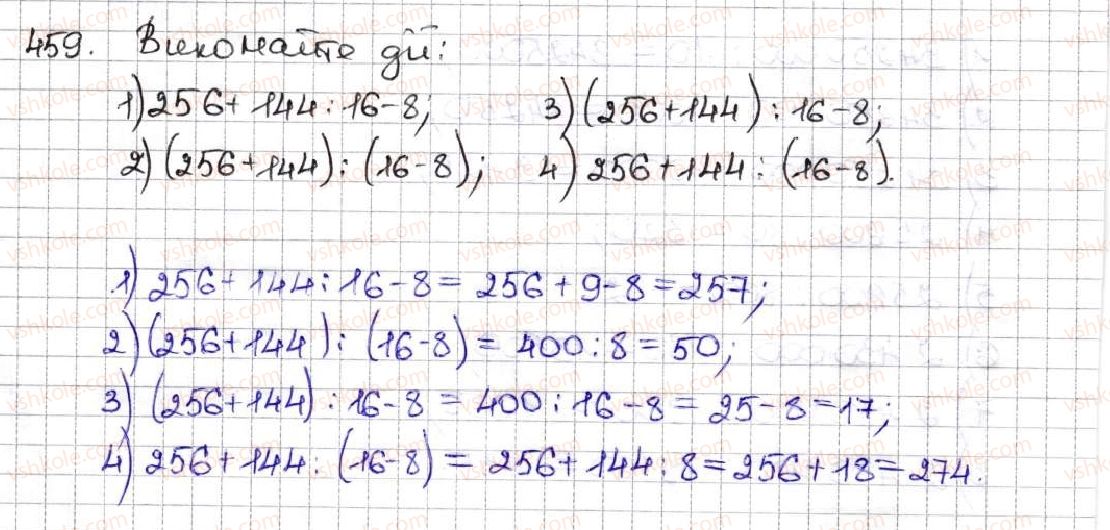 459. Виконайте дії:
1) 256 + 144 : 16 - 8; 3) (256 + 144) : 16 - 8;
2) (256 + 144) : (16 - 8); 4) 256 + 144 : (16 - 8).
1) 256 + 144 : 16 - 8 = 256 + 9 - 8 = 257;
2) (256 + 144) : (16 - 8) = 400 : 8 = 50;
3) (256 + 144) : 16 - 8 = 400 : 16 - 8 = 25 - 8 = 17;
4) 256 + 144 : (16 - 8) = 256 + 144 : 8 = 256 + 18 = 274.